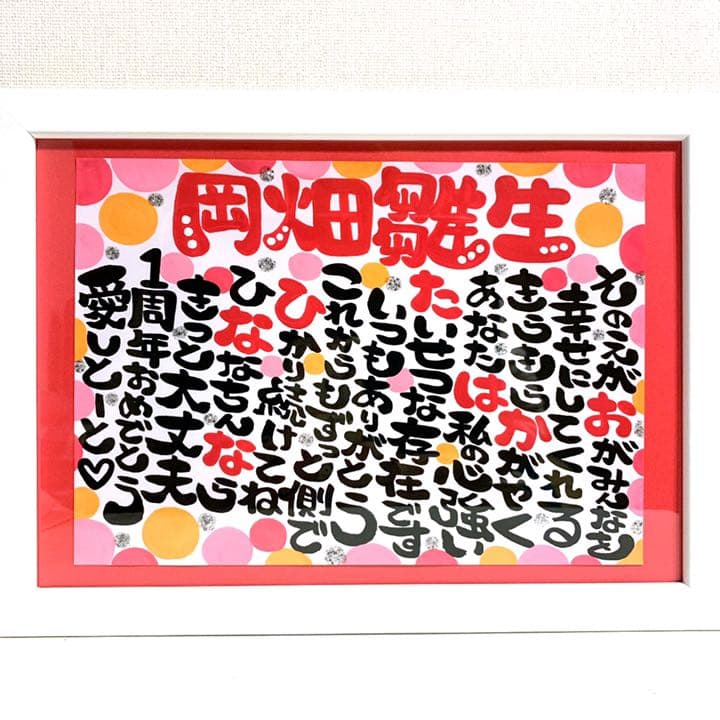 岡畑雛生
そのえがおがみんなを
幸せにしてくれる
きらきらかがやく
あなたは私の心強い
たいせつな存在です
いつもありがとう
これからもずっと側で
ひかり続けてね
ひななちんなら
きっと大丈夫
1周年おめでとう
愛しとーと♡